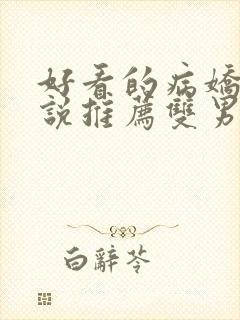 好看的病嬌
說推薦雙男
白辭苓